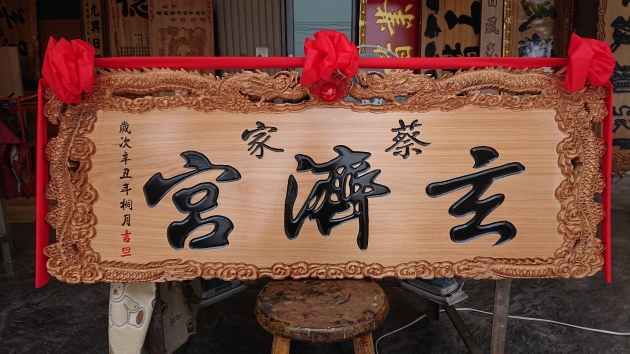 蔡家
玄濟宮
歲次辛丑年桐月吉旦